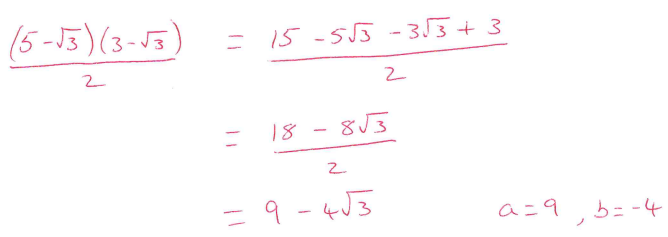 (5-√3)(3-√3)/2 = (15 - 5√3 - 3√3 + 3)/2
= (18 - 8√3)/2
= 9 - 4√3 a=9, b=-4